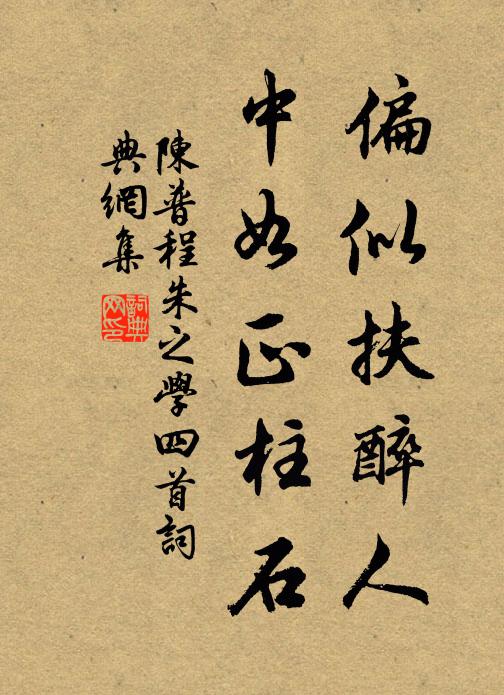 偏似扶醉人
中如正柱石
陳普程朱之學四首詞
典網集
詞典网印